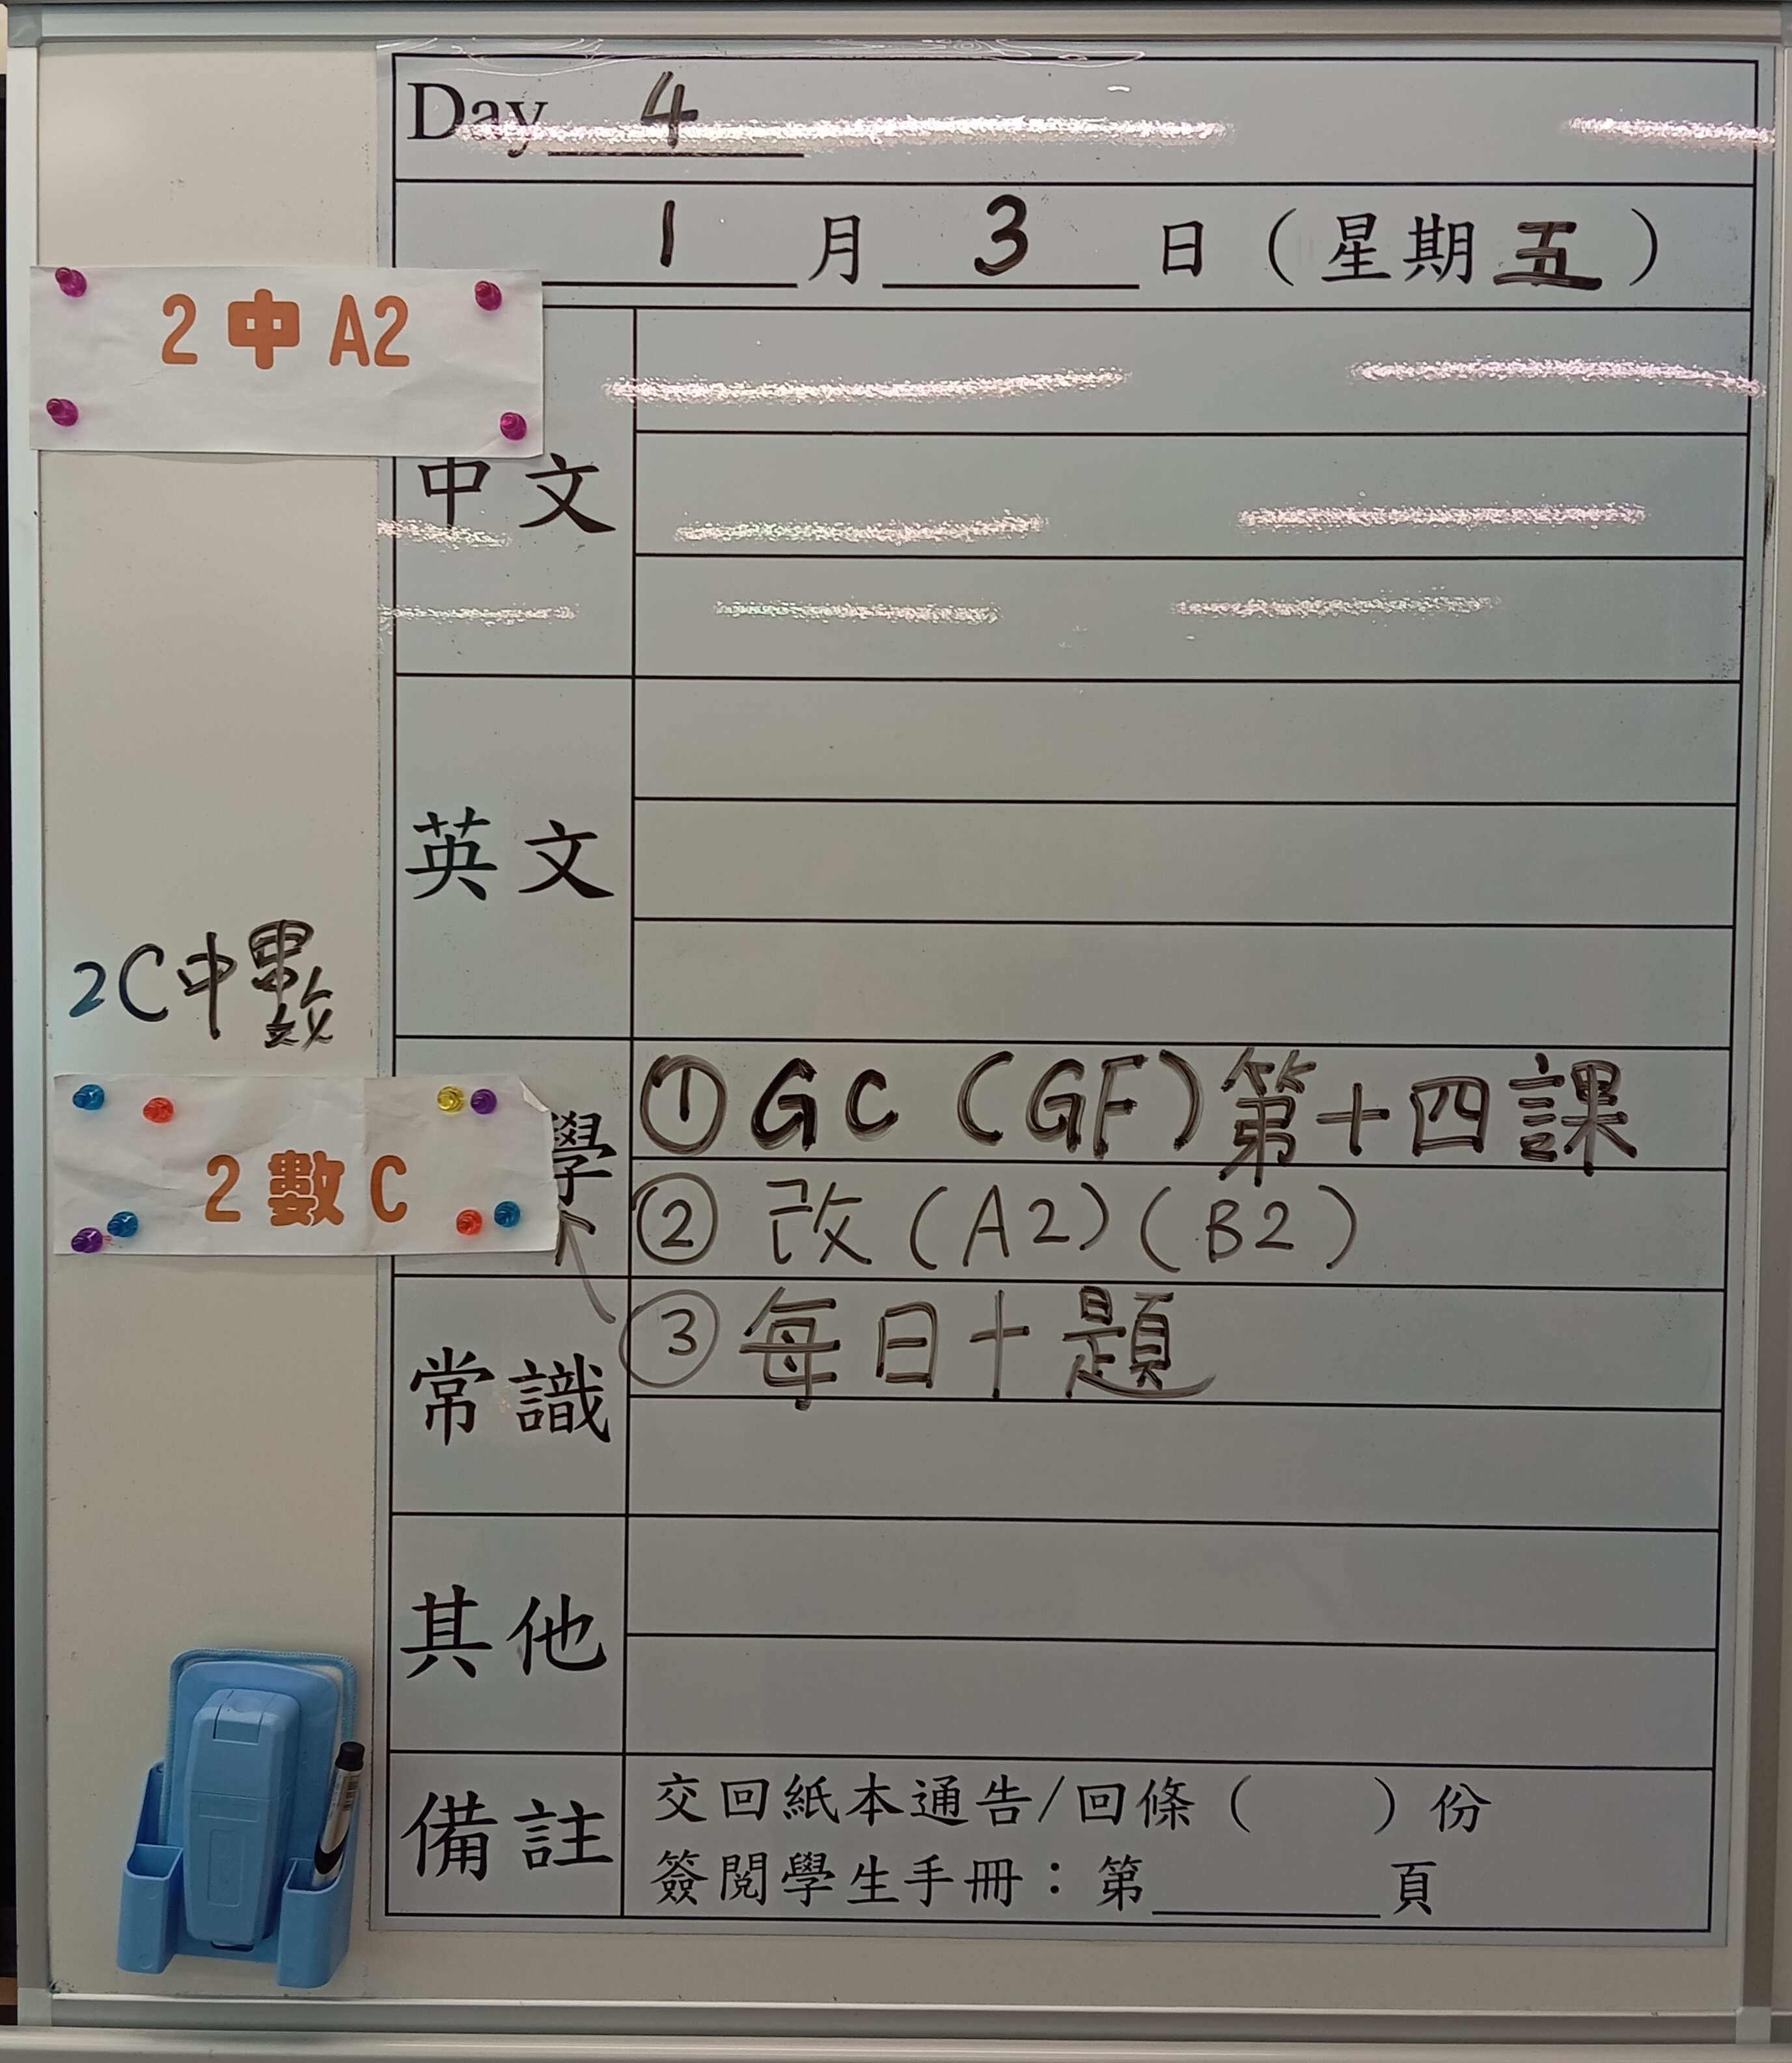 Day 4
1 月 3 日 (星期五)
2 中 A2
中文
英文
2C中
2 數 C
學
① GC (GF) 第十四課
② 改 (A2) (B2)
③ 每日十題
常識
其他
備註
交回紙本通告/回條 ( ) 份
簽閱學生手冊:第______頁